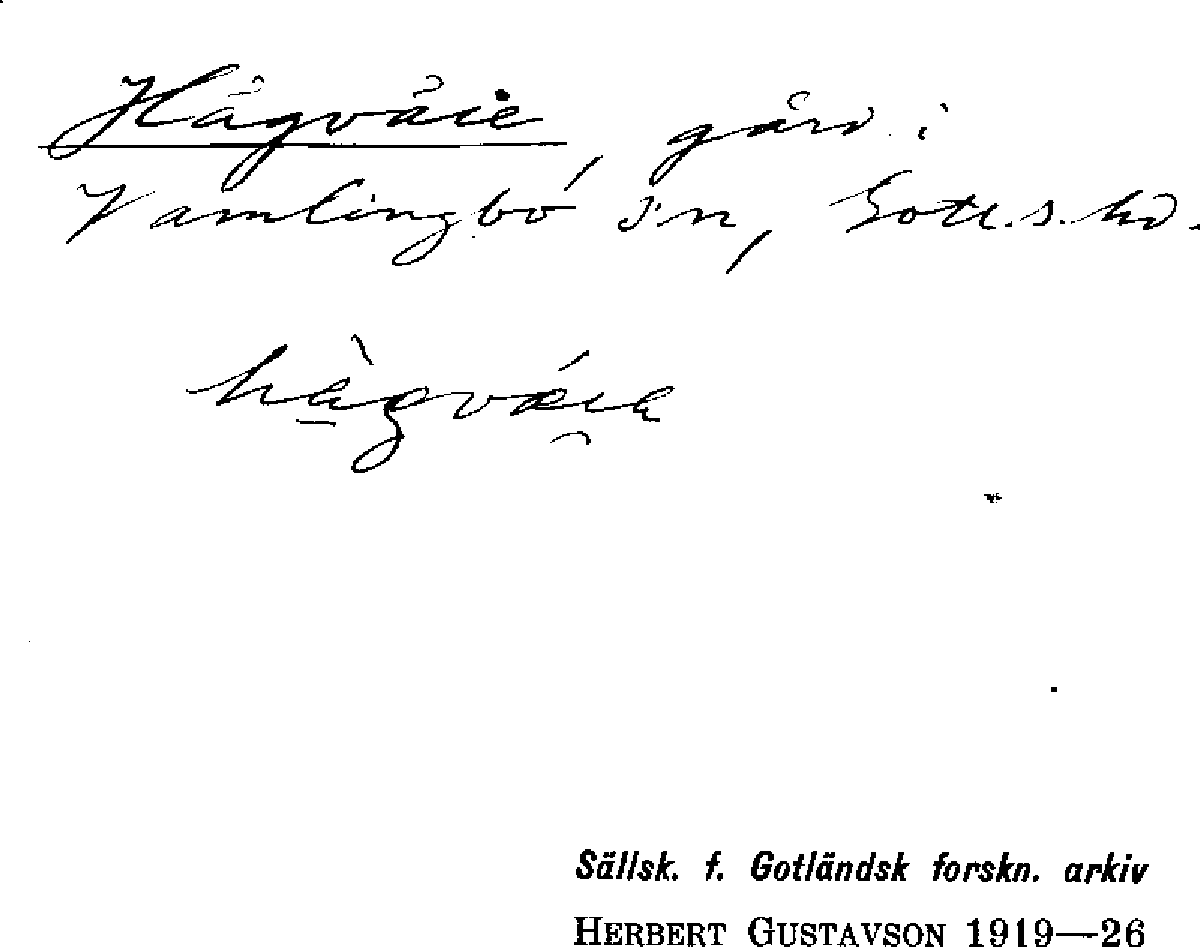 Hågvåie gård i
Vamlingbo sn, Gotl. s. hd.
hàgváia
Sällsk. f. Gotländsk forskn. arkiv
HERBERT GUSTAVSON 1919—26